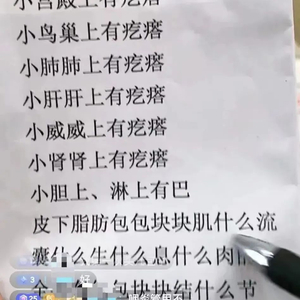 小宫殿上有疙瘩
小鸟巢上有疙瘩
小肺肺上有疙瘩
小肝肝上有疙瘩
小威威上有疙瘩
小肾肾上有疙瘩
小胆上、淋上有巴
皮下脂肪包包块块肌什么流
囊什么生什么息什么肉
包块块结什么节
25
3
好